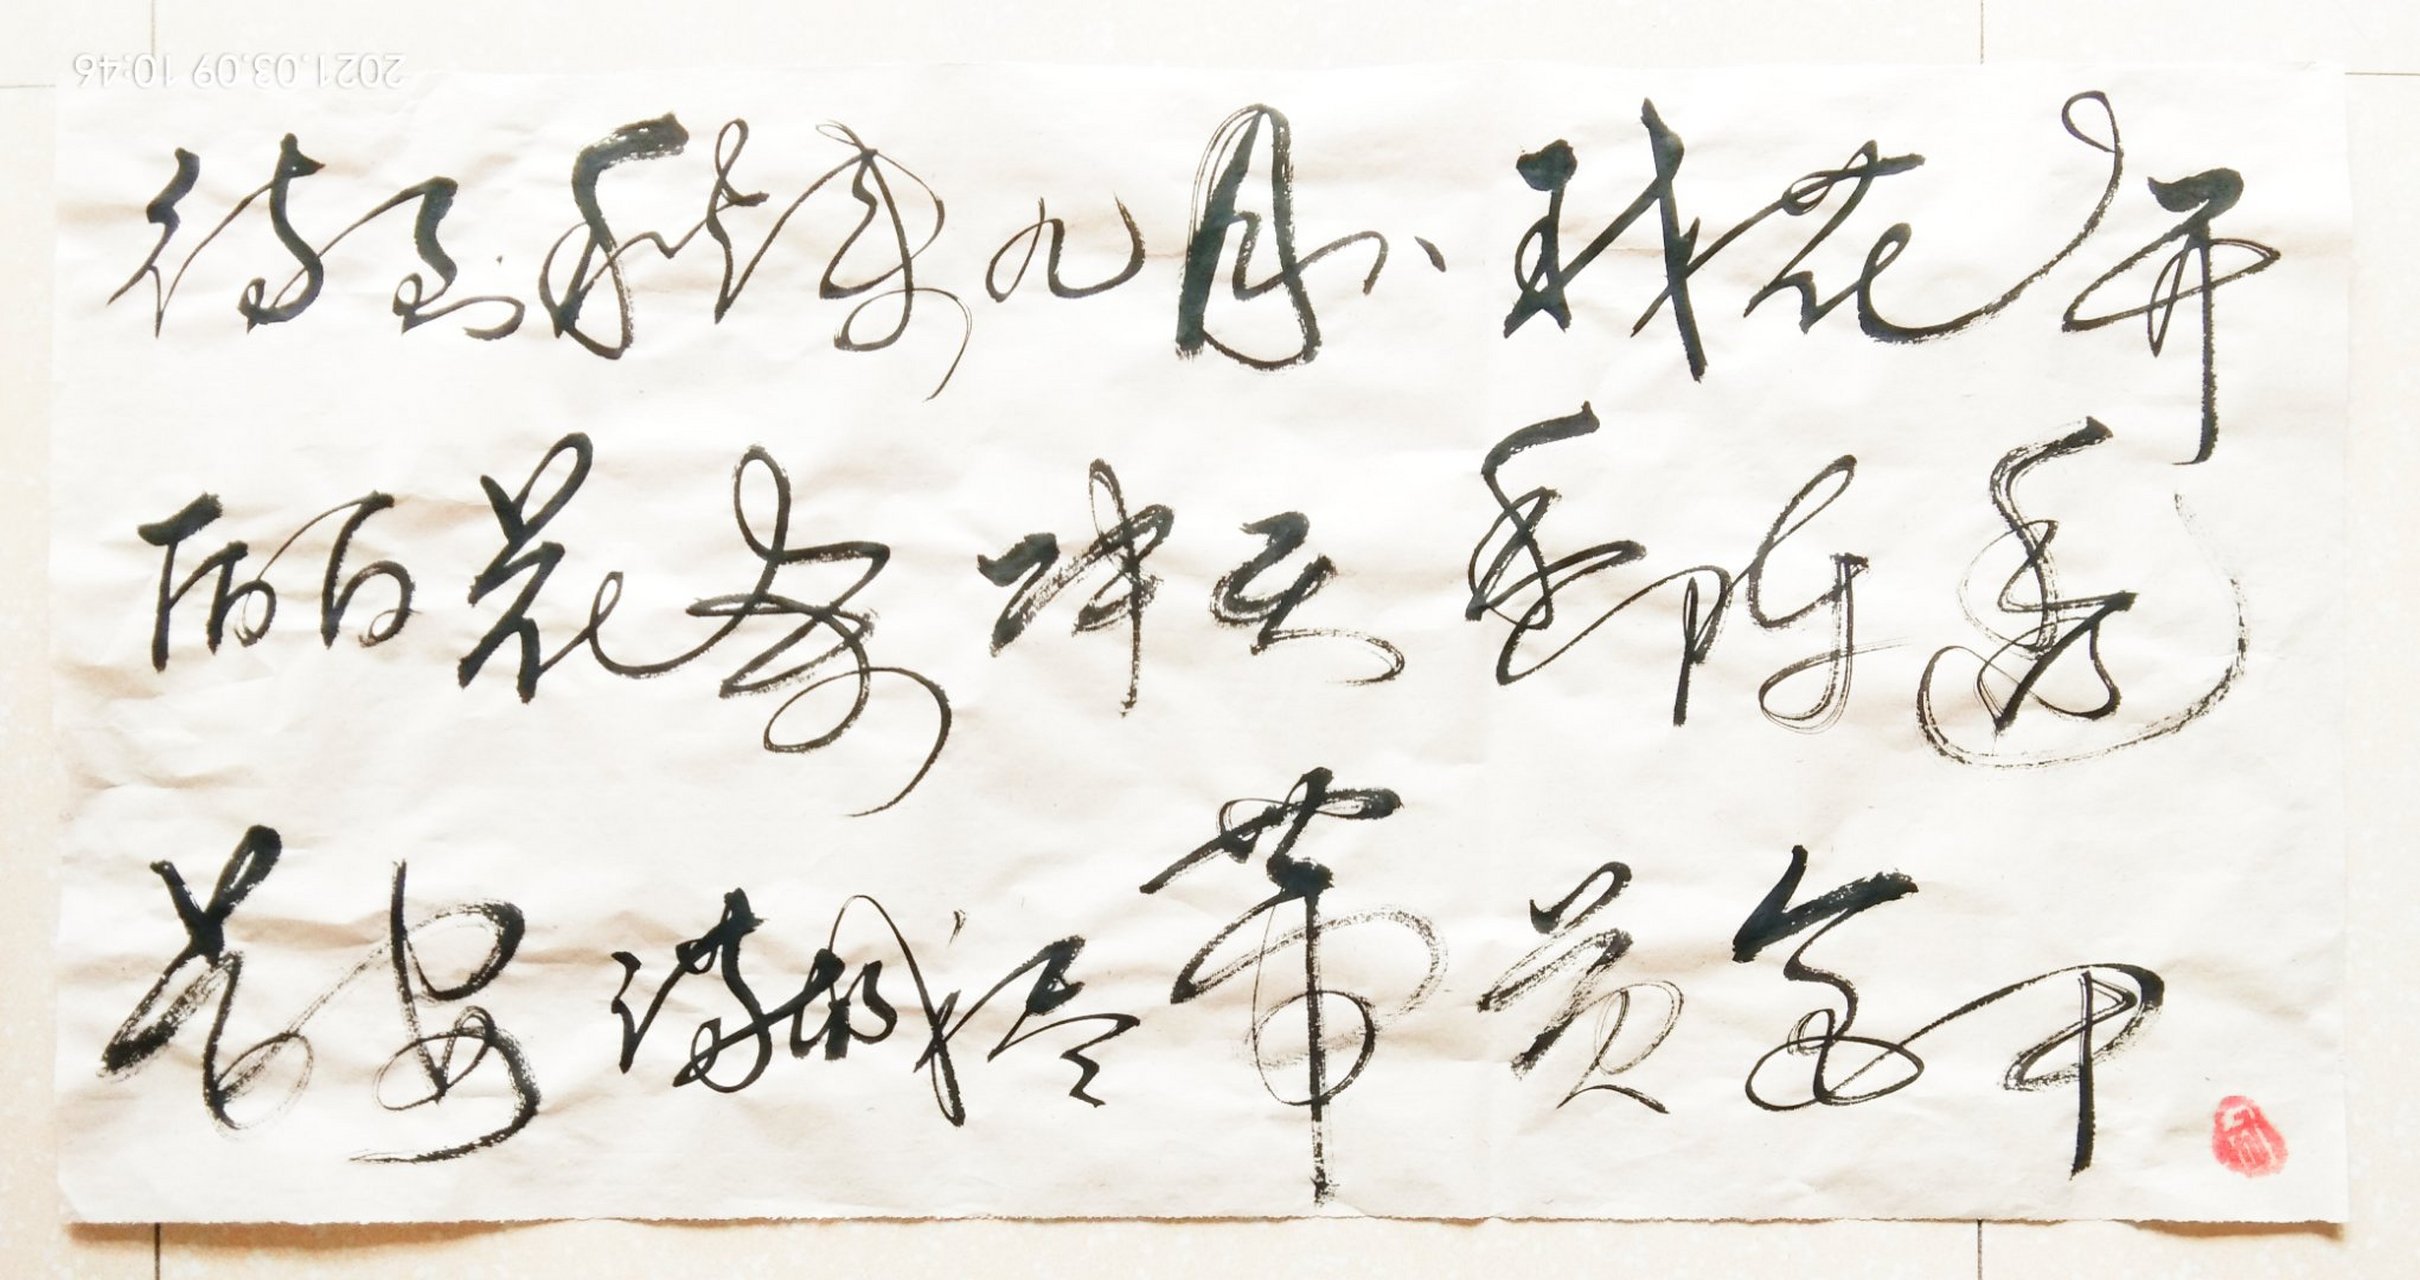 2021.03.09 10:46
待到秋来九月八我花开
后百花杀冲天香阵透
长安满城尽带黄金甲